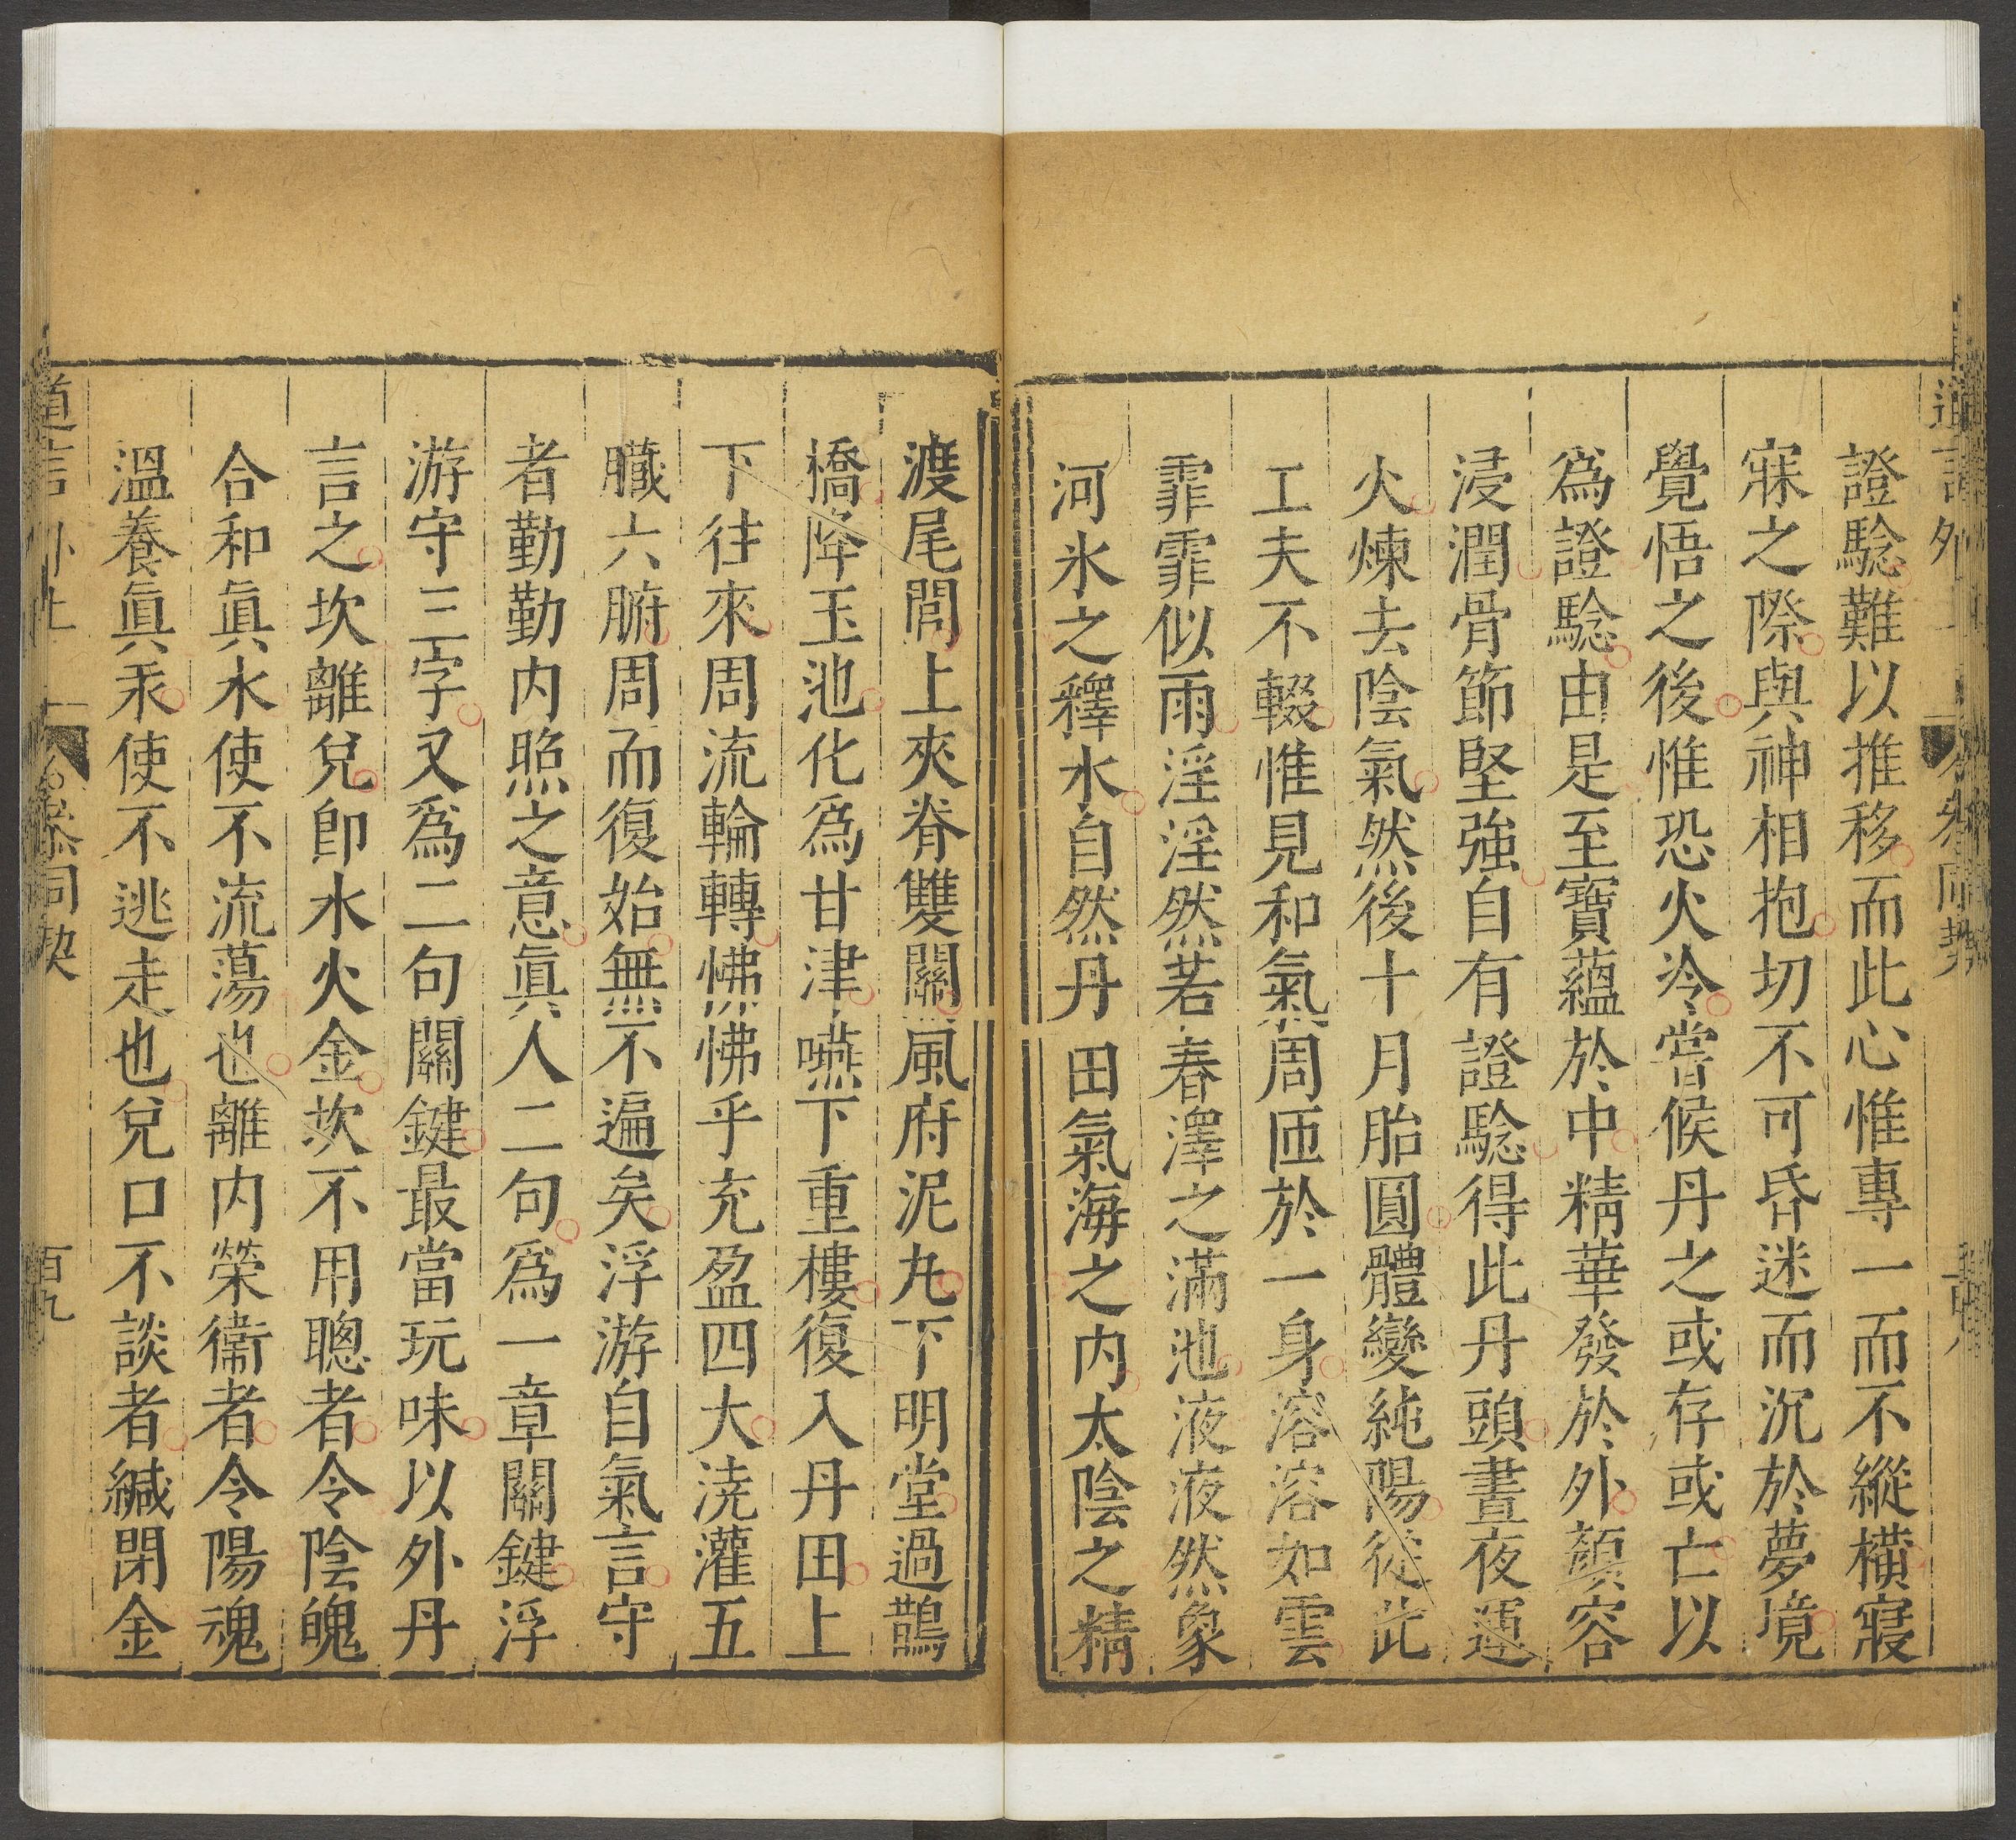 證騐難以推移而此心惟專一而不縱橫寢
寐之際與神相抱切不可昏迷而沉於夢境
覺悟之後惟恐火冷嘗候丹之或存或亡以
爲證騐由是至寶蘊於中精華發於外顔容
浸潤骨節堅強自有證騐得此丹頭晝夜運
火煉去陰氣然後十月胎圓體變純陽從此
工夫不輟惟見和氣周匝於一身溶溶如雲
霏霏似雨淫淫然若春澤之滿池液液然象
河氷之釋水自然丹田氣海之内太陰之精
渡尾閭上夾脊雙關風府泥丸下明堂過鵲
橋降玉池化爲甘津嚥下重樓復入丹田上
下往來周流輪轉怫怫乎充盈四大澆灌五
臟六腑周而復始無不遍矣浮游自氣言守
者勤勤内照之意眞人二句爲一章關鍵浮
游守三字又爲二句關鍵最當玩味以外丹
言之坎離兌卽水火金坎不用聰者令陰魄
合和眞水使不流蕩也離内榮衞者令陽魂
溫養眞汞使不逃走也兌口不談者緘閉金
道言 外上 參同契 百九